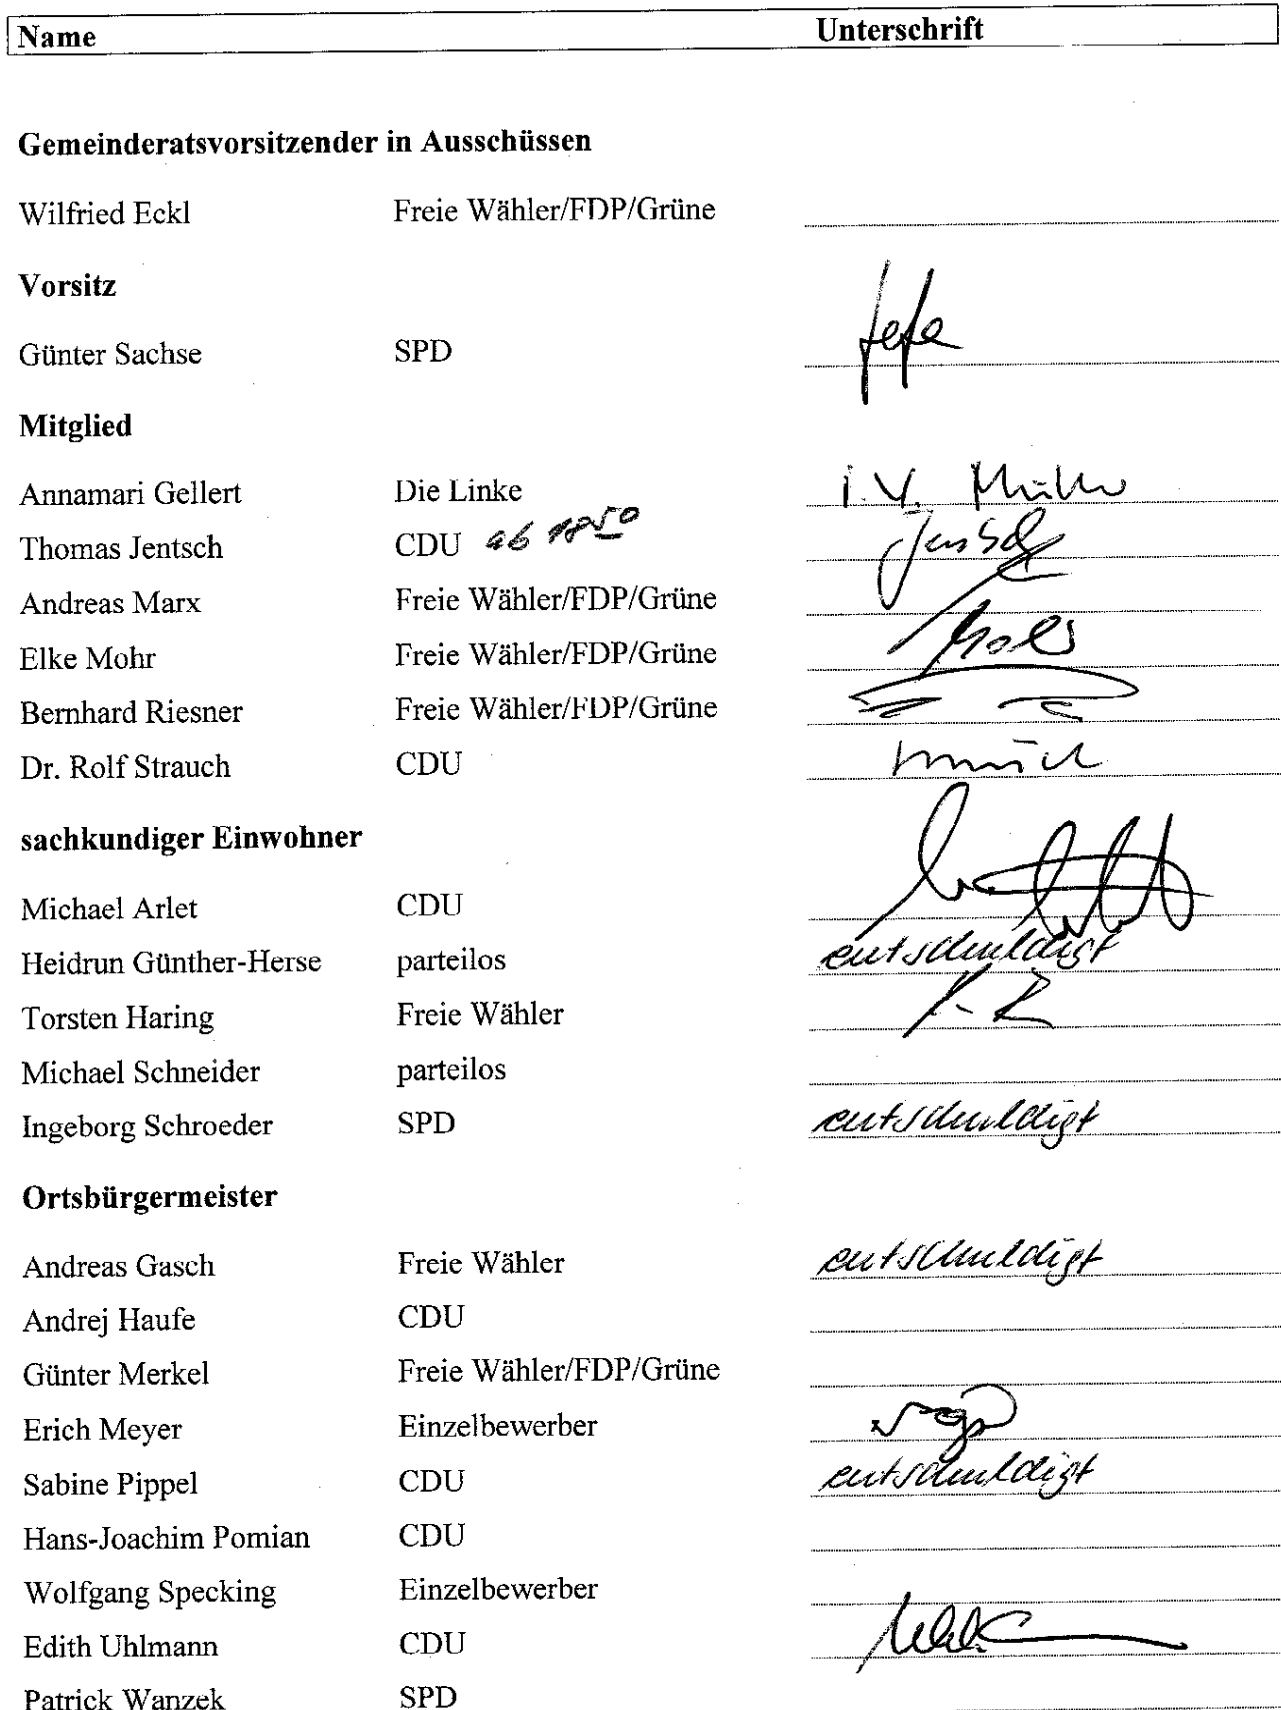 Name Unterschrift
Gemeinderatsvorsitzender in Ausschüssen
Wilfried Eckl Freie Wähler/FDP/Grüne
Vorsitz
Günter Sachse SPD
Mitglied
Annamari Gellert Die Linke i.V. Müller
Thomas Jentsch CDU ab 18 50 Jentsch
Andreas Marx Freie Wähler/FDP/Grüne
Elke Mohr Freie Wähler/FDP/Grüne
Bernhard Riesner Freie Wähler/FDP/Grüne
Dr. Rolf Strauch CDU
sachkundiger Einwohner
Michael Arlet CDU
Heidrun Günther-Herse parteilos entschuldigt
Torsten Haring Freie Wähler
Michael Schneider parteilos
Ingeborg Schroeder SPD entschuldigt
Ortsbürgermeister
Andreas Gasch Freie Wähler entschuldigt
Andrej Haufe CDU
Günter Merkel Freie Wähler/FDP/Grüne
Erich Meyer Einzelbewerber
Sabine Pippel CDU entschuldigt
Hans-Joachim Pomian CDU
Wolfgang Specking Einzelbewerber
Edith Uhlmann CDU
Patrick Wanzek SPD